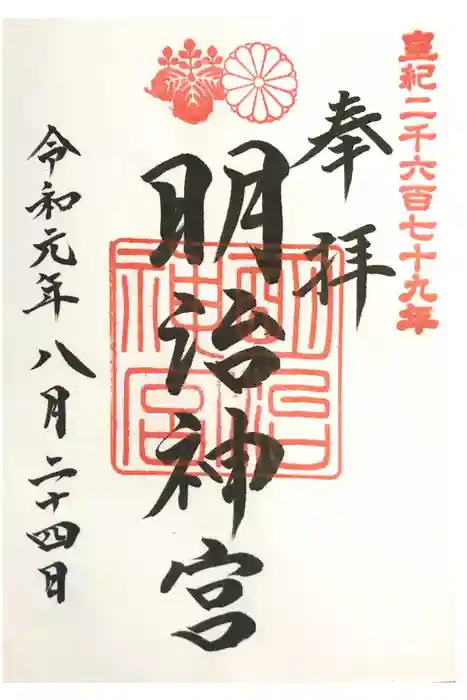 皇紀二千六百七十九年
奉拝
明治神宮
明治神宮
令和元年八月二十四日